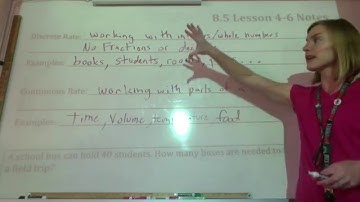 8.5 Lesson 4-6 Notes
Discrete Rate: working with /whole numbers
No Fractions or
Examples: books, students,
Continuous Rate: working with parts of a
Examples: Time, Volume, food
A school bus can hold 40 students. How many buses are needed to
a field trip?